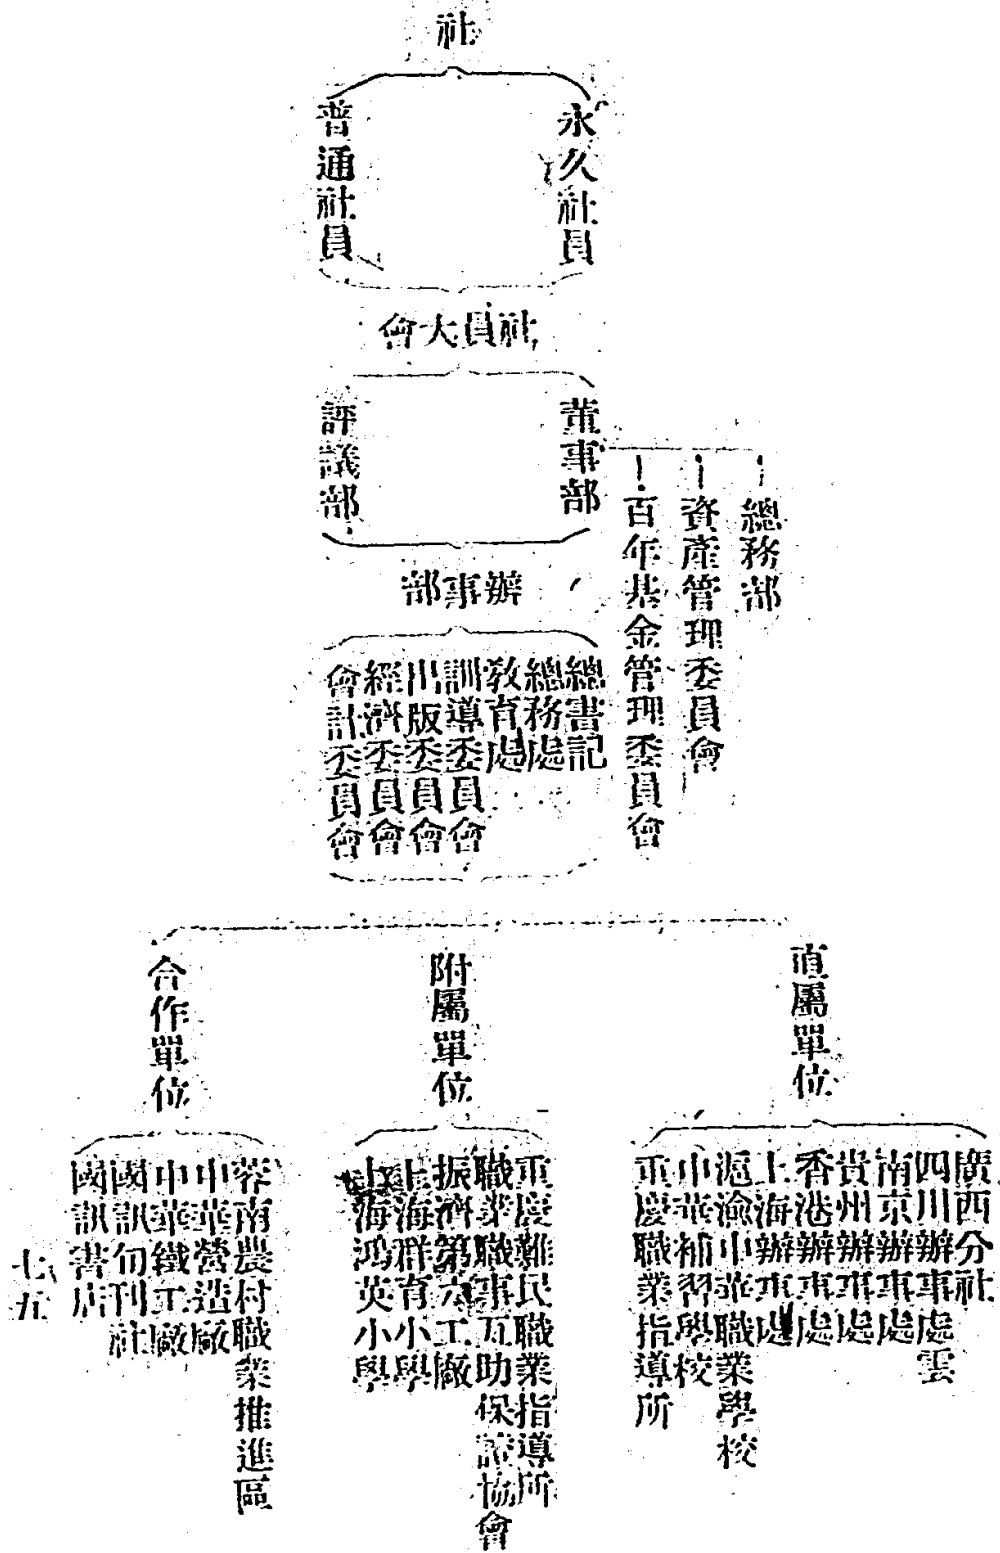 社
永久社員
普通社員
社員大會
董事部
評議部
總務部
資產管理委員會
百年基金管理委員會
辦事部
總書記
總務處
教育處
訓導委員會
出版委員會
經濟委員會
會計委員會
直屬單位
廣西分社
四川辦事處雲
南京辦事處
貴州辦事處
香港辦事處
上海辦事處
滬渝中華職業學校
中華補習學校
重慶職業指導所
附屬單位
重慶難民職業指導所
職業職事互助保證協會
振濟第六工廠
上海群育小學
上海鴻英小學
合作單位
蓉南農村職業推進區
中華營造廠
中華鐵工廠
國訊旬刊社
國訊書店
七五